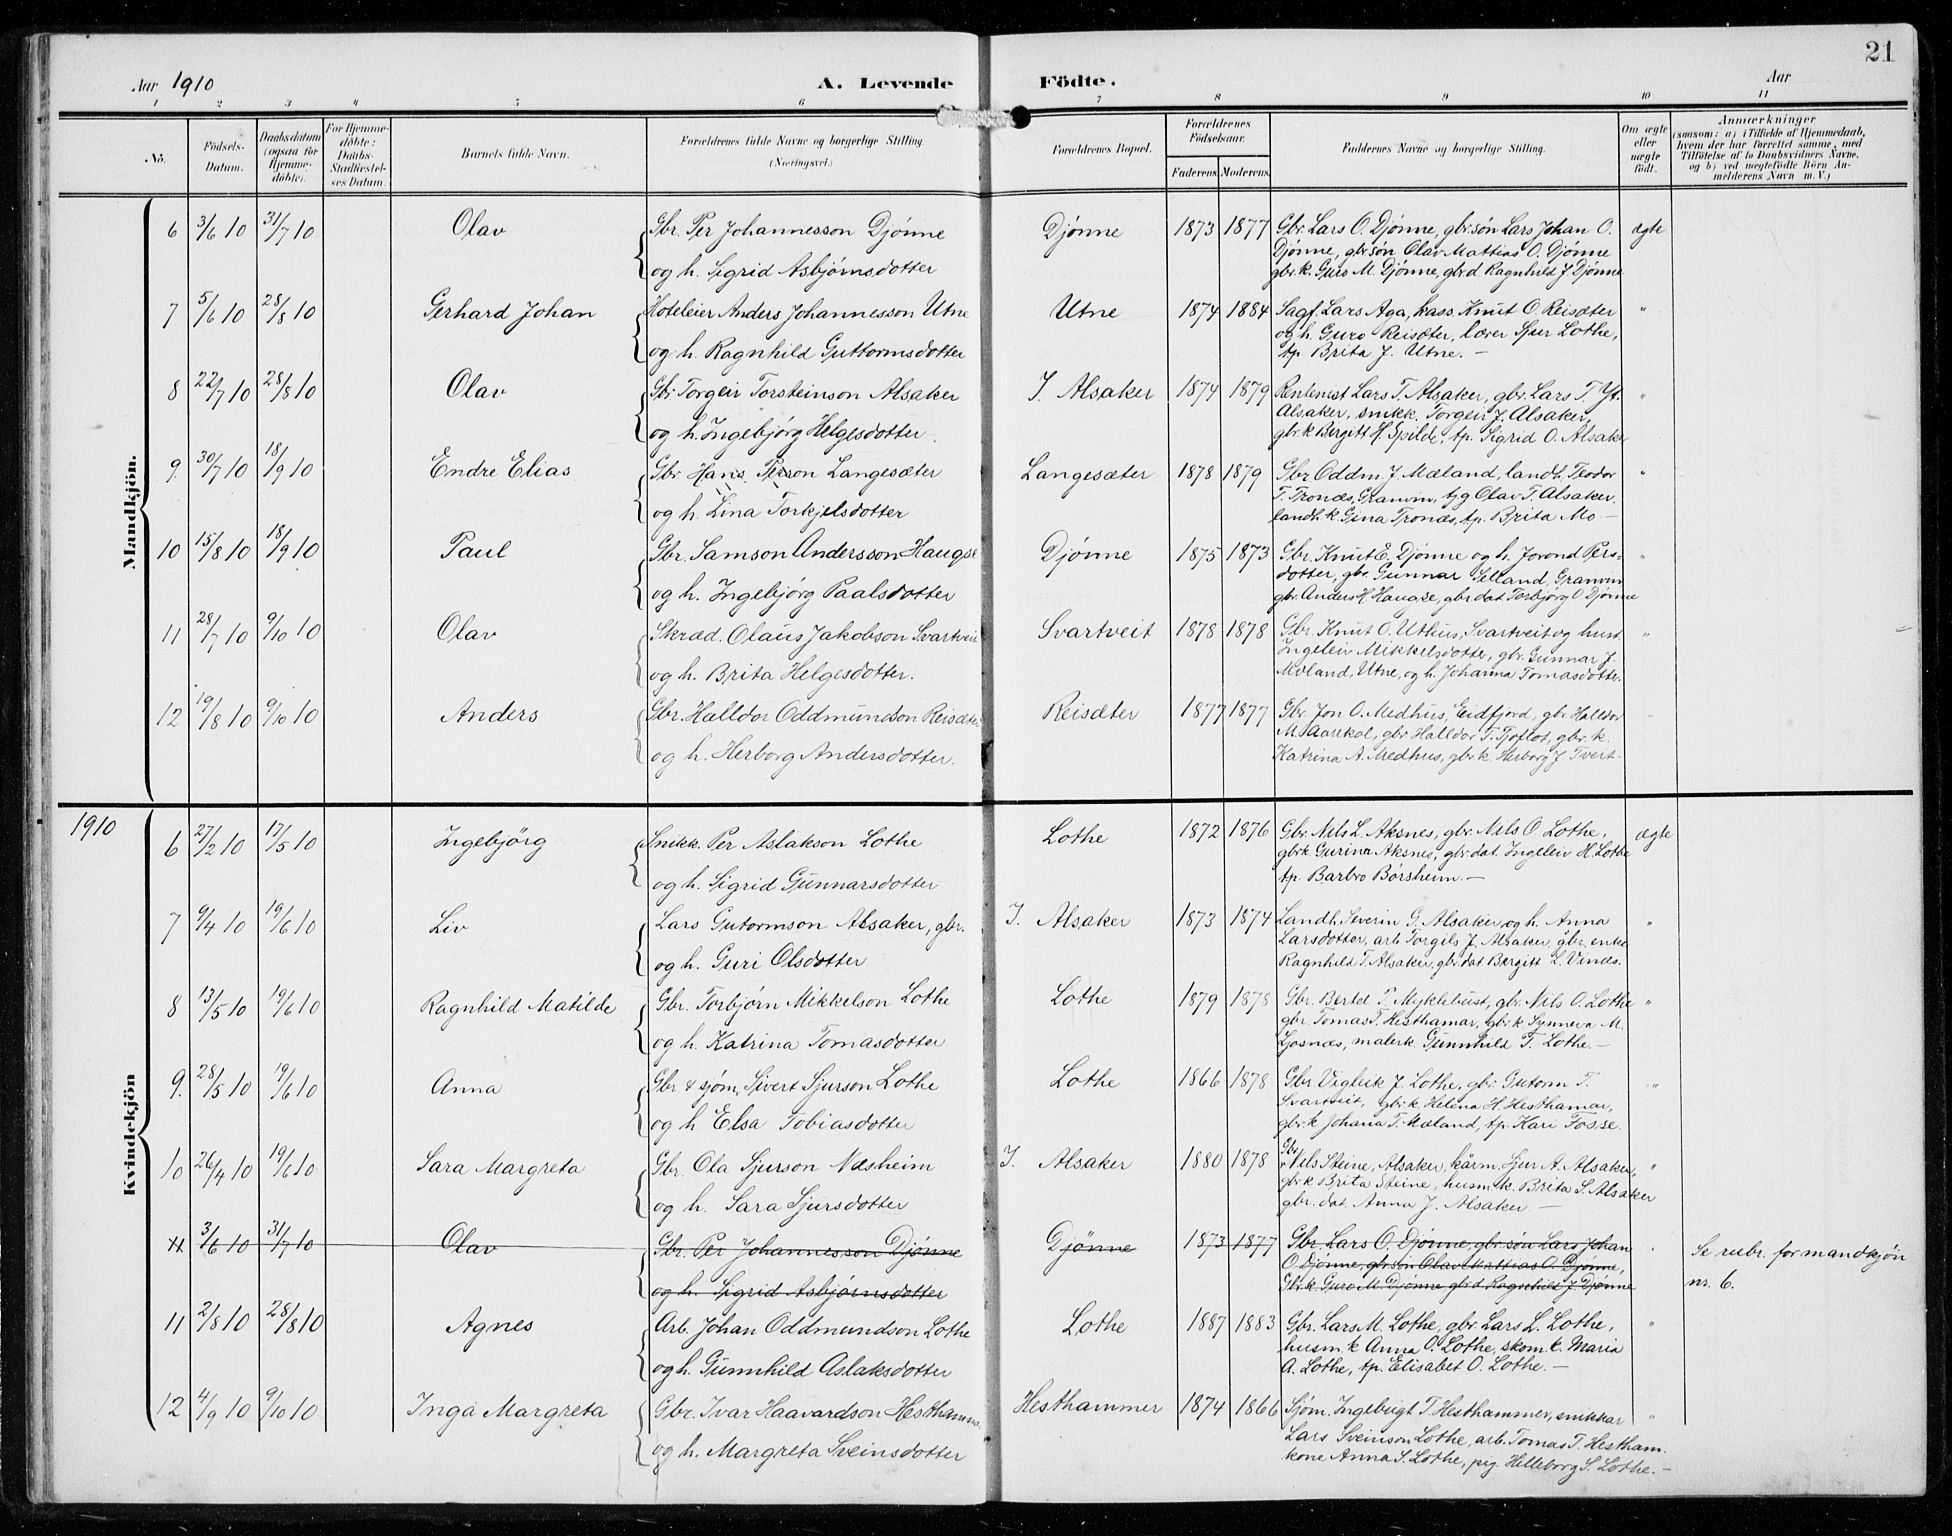 21
Aar 1910 A. Levende Födte. Aar
1 2 3 4 5 6 7 8 9 10 11
No.
Födsels-
Datum.
Daabsdatum
(ogsaa for
Hjemme-
döbte).
For Hjemme-
döbte:
Daabs-
Stadfæstel-
ses Datum.
Barnets fulde Navn.
Forældrenes fulde Navne og borgerlige Stilling.
(Næringsvei.)
Forældrenes Bopæl.
Forældrenes
Födselsaar.
Faderens. Moderens.
Faddernes Navne og borgerlige Stilling.
Om ægte
eller
uægte
födt.
Anmærkninger
(saasom: a) i Tilfælde af Hjemmedaab,
hvem der har forrettet samme, med
Tilföielse af to Daabsvidners Navne,
og b) ved uægtefödte Börn An-
melderens Navn m. V.)
Mandkjön.
6 3/6 10 31/7 10 Olav Gbr. Per Johannesson Djønne Djønne 1873 1877 Gbr. Lars O. Djønne, gbr.søn Lars Johan O. ægte
og h. Sigrid Asbjørnsdotter Djønne, gbr.søn Olav Mattias O. Djønne
gbr.k. Guro M. Djønne, gbr.d Ragnhild J Djønne
7 5/6 10 28/8 10 Gerhard Johan Hoteleier Anders Johannesson Utne Utne 1874 1884 Sagf. Lars Aga, kass. Knut O. Reisæter "
og h. Ragnhild Guttormsdotter og h. Guro Reisæter, lærer Sjur Lothe,
tp. Brita J. Utne. —
8 22/7 10 28/8 10 Olav Gbr. Torgeir Torsteinson Alsaker I. Alsaker 1874 1879 Rentenist Lars T. Alsaker, gbr. Lars T. Yt. "
og h. Ingebjørg Helgesdotter. Alsaker, snikk. Torgeir J. Alsaker,
gbr.k Bergitt H. Spilde, tp. Sigrid O. Alsaker
9. 30/7 10 18/9 10 Endre Elias Gbr. Hans Person Langesæter Langesæter 1878 1879 Gbr Oddm. J. Mæland, landh. Teodor "
og h. Lina Torkjelsdotter T. Tronæs, Granvin, tjg Olav T. Alsaker,
landh.k Gina Tronæs, tp. Brita Mo —
10 15/8 10 18/9 10 Paul Gbr. Samson Andersson Haugse Djønne 1875 1873 Gbr. Knut E. Djønne og h. Jorond Pers- "
og h. Ingebjørg Paalsdotter dotter, gbr. Gunnar Selland, Granvin
gbr. Anders H Haugse, gbr.dat Torbjørg O. Djønne
11 28/7 10 9/10 10 Olav Skræd. Olaus Jakobson Svartveit Svartveit 1878 1878 Gbr. Knut O. Uthus, Svartveit og hust. "
og h. Brita Helgesdotter. Ingeleiv Mikkelsdotter, gbr. Gunnar J.
Mæland, Utne, og h. Johanna Tomasdotter.
12 19/8 10 9/10 10 Anders Gbr. Halldor Oddmundson Reisæter Reisæter 1877 1877 Gbr. Jon O. Medhus, Eidfjord, gbr Halldor "
og h. Herborg Andersdotter. M. Aarekol, gbr Halldor T. Tjoflot, gbr.k.
Katrina A. Medhus, gbr.k. Herborg J Tveit.
1910
Kvindekjön
6 27/2 10 17/5 10 Ingebjörg Snikk. Per Aslakson Lothe Lothe 1872 1876 Gbr. Nils L. Aksnes, gbr. Nils O. Lothe, ægte
og h. Sigrid Gunnarsdotter gbr.k. Gurina Aksnes, gbr.dat. Ingeleiv H. Lothe
tp. Barbro Børsheim. —
7 9/4 10 19/6 10 Liv Lars Gutormson Alsaker, gbr. I. Alsaker 1873 1874 Landh. Severin G. Alsaker, og h. Anna "
og h. Guri Olsdotter Larsdotter, arb Torgils J. Alsaker, gbr. enke
Ragnhild T. Alsaker, gbr.dat Bergitt L Vines.
8 13/5 10 19/6 10 Ragnhild Matilde Gbr. Torbjørn Mikkelson Lothe Lothe 1879 1878 Gbr. Bertel T. Myklebust, gbr. Nils O. Lothe "
og h. Katrina Tomasdotter gbr. Tomas T. Hesthamar, gbr.k Synneva M.
Josnæs, malerk Gunnhild T. Lothe. —
9. 28/5 10 19/6 10 Anna Gbr & sjøm. Sivert Sjurson Lothe Lothe 1866 1878 Gbr. Vigleik J. Lothe, gbr. Gutorm T. "
og h Elsa Tobiasdotter Svartveit, gbr.k. Helena H. Hesthamar,
gbr.k Johana T. Mæland, tp. Kari Tosse.
10 26/4 10 19/6 10 Sara Margreta Gbr. Ola Sjurson Næsheim I. Alsaker 1880 1878 Gbr. Nils Steine, Alsaker, kårm. Sjur A. Alsaker, "
og h. Sara Sjursdotter gbr.k Brita Steine, husm.k. Brita S. Alsaker
gbr. dat. Anna J. Alsaker —
11 3/6 10 31/7 10 Olav Gbr. Per Johannesson Djønne Djønne 1873 1877 Gbr. Lars O. Djønne, gbr. søn Lars Johan " Se rubr. for mandkjøn
og h. Sigrid Asbjørnsdotter O. Djønne, gbr.søn Olav Mattias O. Djønne, nr. 6.
Gbr.k. Guro M. Djønne gbr.d Ragnhild J. Djønne
11 2/8 10 28/8 10 Agnes Arb. Johan Oddmundson Lothe Lothe 1887 1883 Gbr. Lars M. Lothe, gbr. Lars L. Lothe, "
og h. Gunnhild Aslaksdotter husm.k Anna O. Lothe, skom.k. Maria
A. Lothe, tp. Elisabet O. Lothe. —
12 4/9 10 9/10 10 Inga Margreta Gbr. Ivar Haavardson Hesthammer Hesthammer 1874 1866 Sjøm. Ingebugt T. Hesthammer, snikkar "
og h. Margreta Sveinsdotter Lars Sveinson Lothe, arb. Tomas T. Hestham.
kone Anna S. Lothe, pig. Helleborg S. Lothe. —